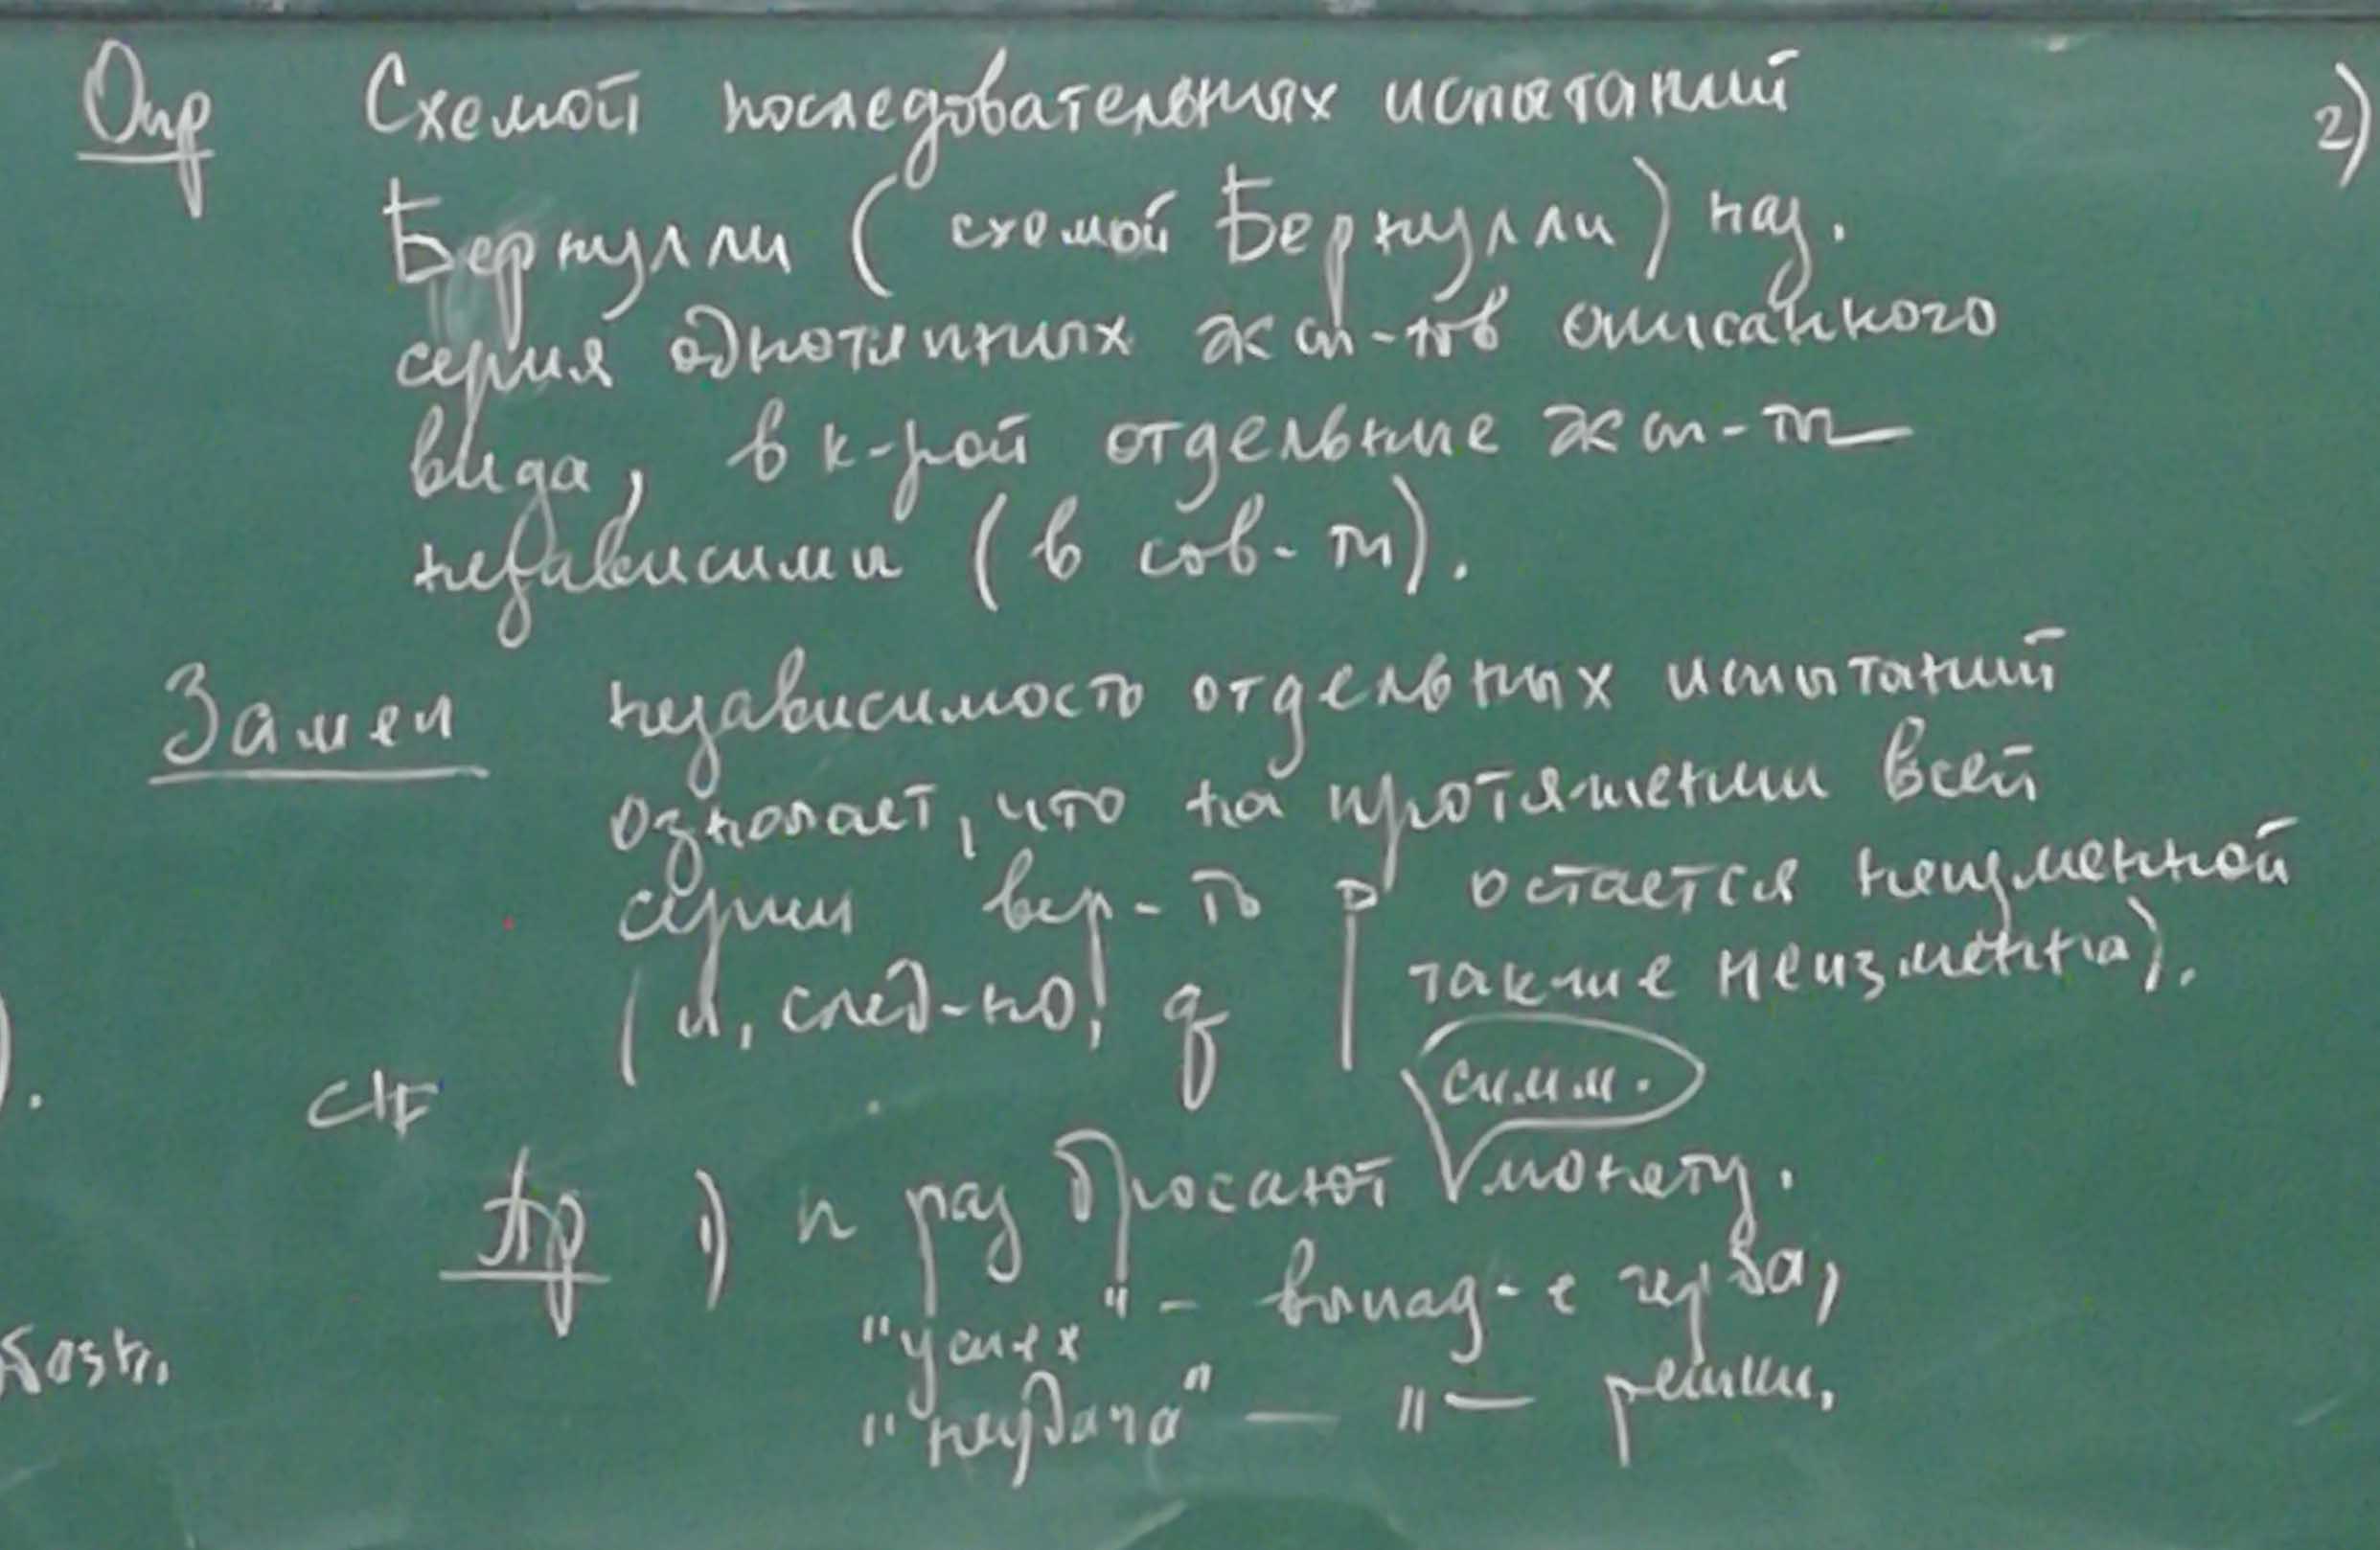 Опр Схемой последовательных испытаний
Бернулли (схемой Бернулли) наз.
серия однотипных эксп-тов описанного
вида, в к-рой отдельные эксп-ты
независимы (в сов-ти).
Замеч независимость отдельных испытаний
означает, что на протяжении всей
серии вер-ть p остается неизменной
(и, след-но, q также неизменна).
симм.
Пр 1) n раз бросают монету.
"успех" - выпад-е герба,
"неудача" — " — решки.
2)